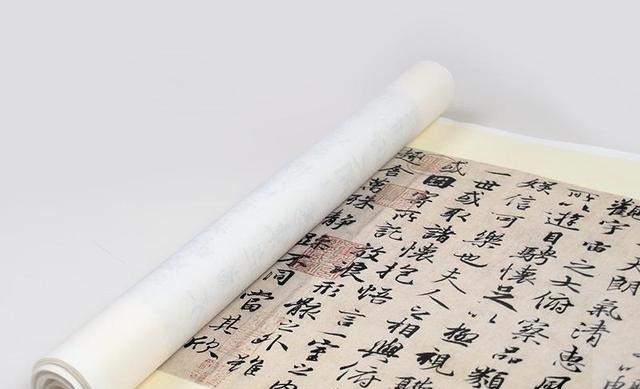 天朗氣清惠風
觀宇宙之大俯察品類
所以遊目騁懷足以極視聽
娛信可樂也夫人之相與俯
一世或取諸懷抱悟言一室之內
或因寄所託放浪形骸之外雖
趣舍萬殊靜躁不同當其欣